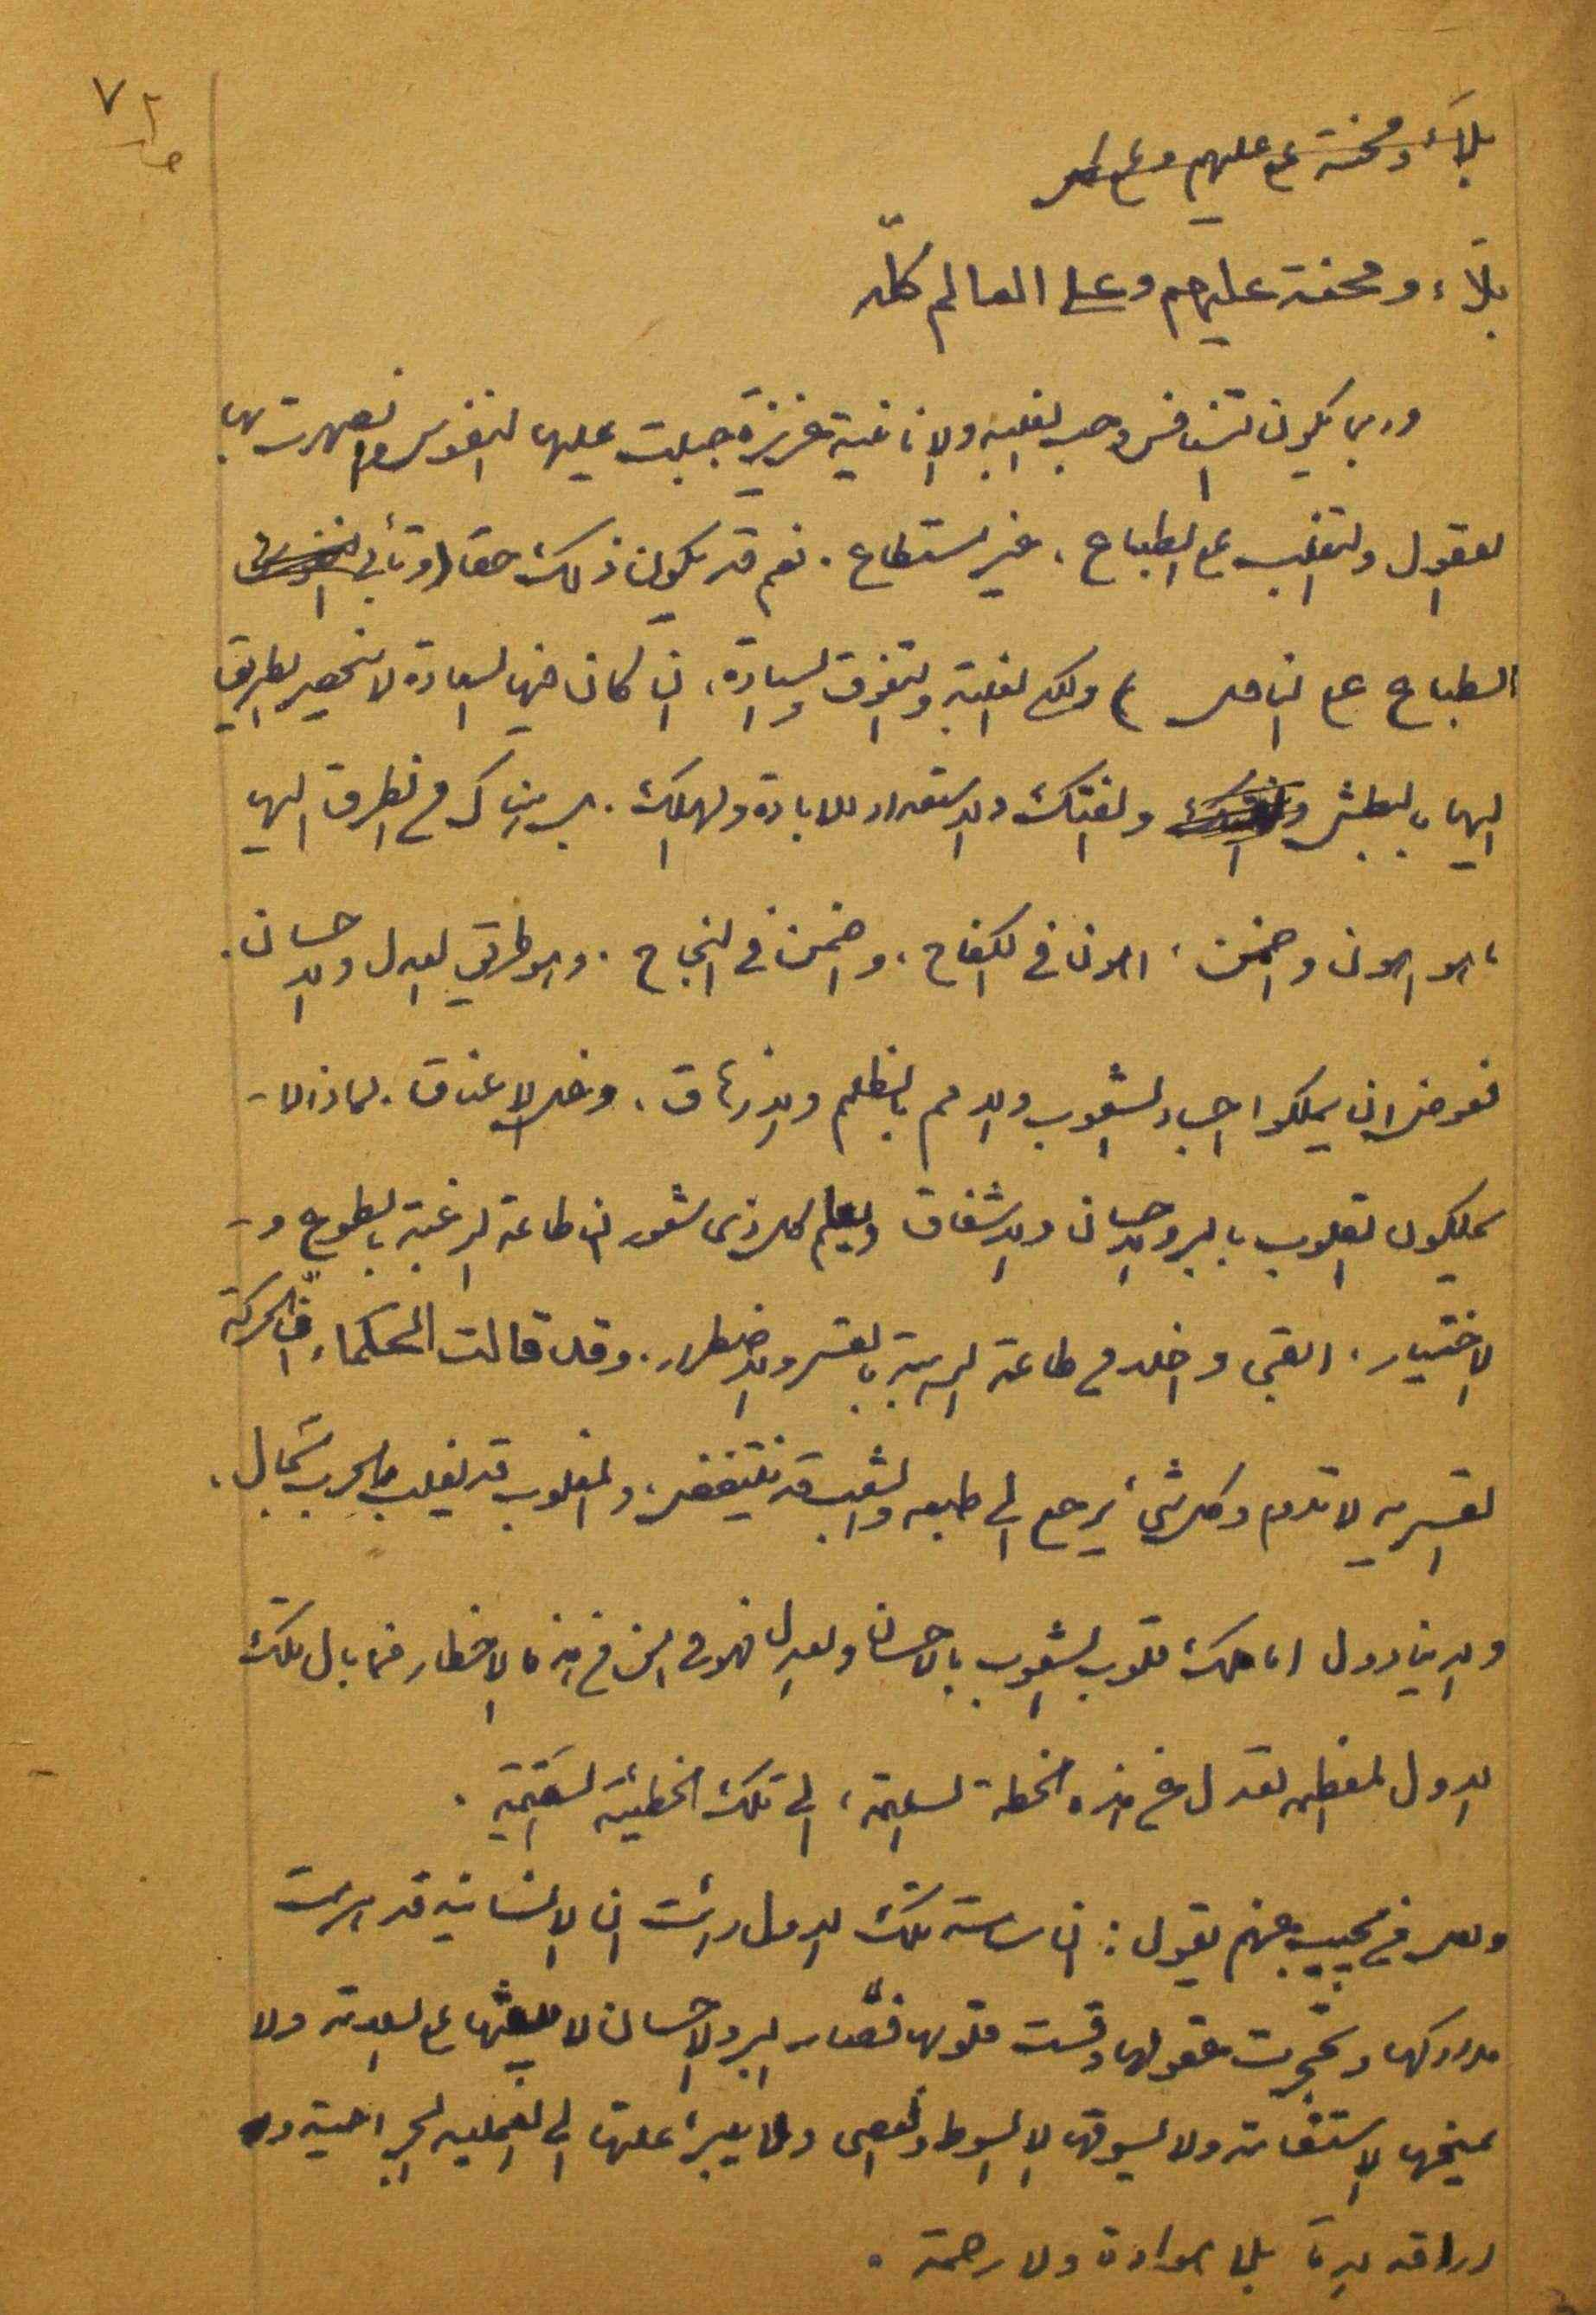 ٧٢
بلاء ومحنة عم عليهم وعلى
بلاء ومحنة عليهم وعلى العالم كلّه
وربما يكون التنافس وحب الغلبة والانانية غريزة جبلت عليها النفوس وانصهرت بها
العقول والتغلب على الطباع ، غير مستطاع . نعم قد يكون ذلك حقا (وتأبى
الطباع على الناقل ) ولكن الغلبة والتفوق والسيادة ، ان كان فيها السعادة لا ينحصر الطريق
اليها بالبطش والفتك والاستعداد للابادة والهلاك . بل هناك من الطرق اليها
ما هو اهون واضمن ، اهون في الكفاح ، واضمن في النجاح . وهو طريق العدل والاحسان .
فعوض ان يملكوا اجساد الشعوب والامم بالظلم والارهاق ، وغل الاعناق . لماذا لا -
يملكون القلوب بالبر والاحسان والاشفاق ويعلم كل ذي شعور ان طاعة الرغبة بالطوع و -
الاختيار . ابقى واخلد من طاعة الرهبة بالقسر والاضطرار . وقد قالت الحكماء انّ الحركة
القسرية لا تدوم وكل شيء يرجع الى طبعه والشعب قد ينتفض ، والمغلوب قد يغلب والحرب سجال .
والدنيا دول اما ملك قلوب الشعوب بالاحسان والعدل فهو في امن من هذه الاخطار فما بال تلك
الدول العظمى تعدل عن هذه الخطة السليمة ، الى تلك الخطيئة السقيمة .
ولعل من مجيب عنهم يقول : ان ساسة تلك الدول رأت ان الانسانية قد
مداركها وتحجرت عقولها وقست قلوبها فصار البر والاحسان لا يبعثها على السلامة ولا
يمنحها الاستقامة ولا يسوقها الا السوط والعصى ولا يبرئ علتها الا العملية الجراحية و
اراقة الدماء بلا هوادة ولا رحمة .